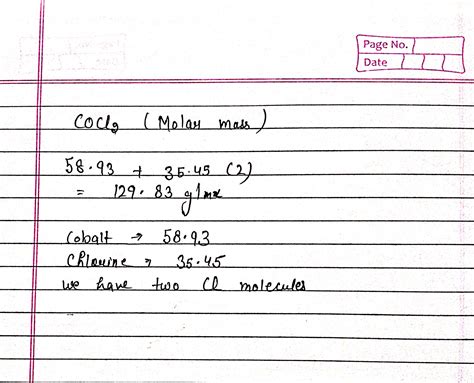 Page No.
Date
COCl2 (Molar mass)
58.93 + 35.45 (2)
= 129.83 g/mol
Cobalt → 58.93
Chlorine → 35.45
we have two Cl molecules